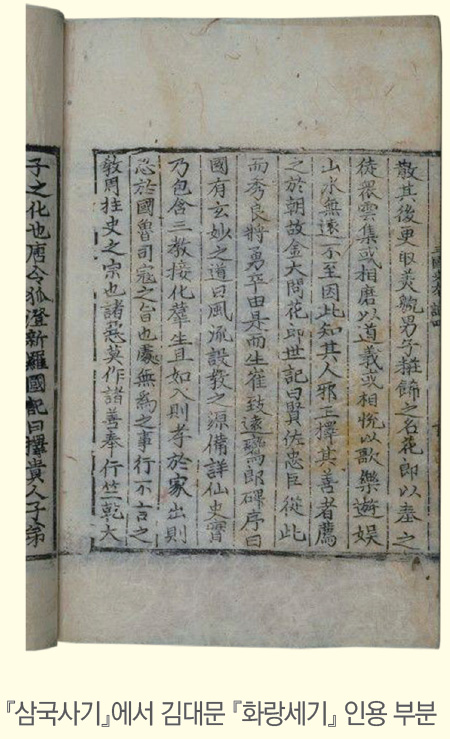 散其後更取美貌男子粧飾之名花郎以奉之
徒衆雲集或相磨以道義或相悅以歌樂遊娱
山水無遠不至因此知其人邪正擇其善者薦
之於朝故金大問花郎世記曰賢佐忠臣從此
而秀良將勇卒由是而生崔致遠鸞郎碑序曰
國有玄妙之道曰風流設敎之源備詳仙史實
乃包含三敎接化羣生且如入則孝於家出則
忠於國魯司寇之旨也處無爲之事行不言之
敎周柱史之宗也諸惡莫作諸善奉行竺乾大
子之化也唐令狐澄新羅國記曰擇貴人子弟
『삼국사기』에서 김대문 『화랑세기』 인용 부분